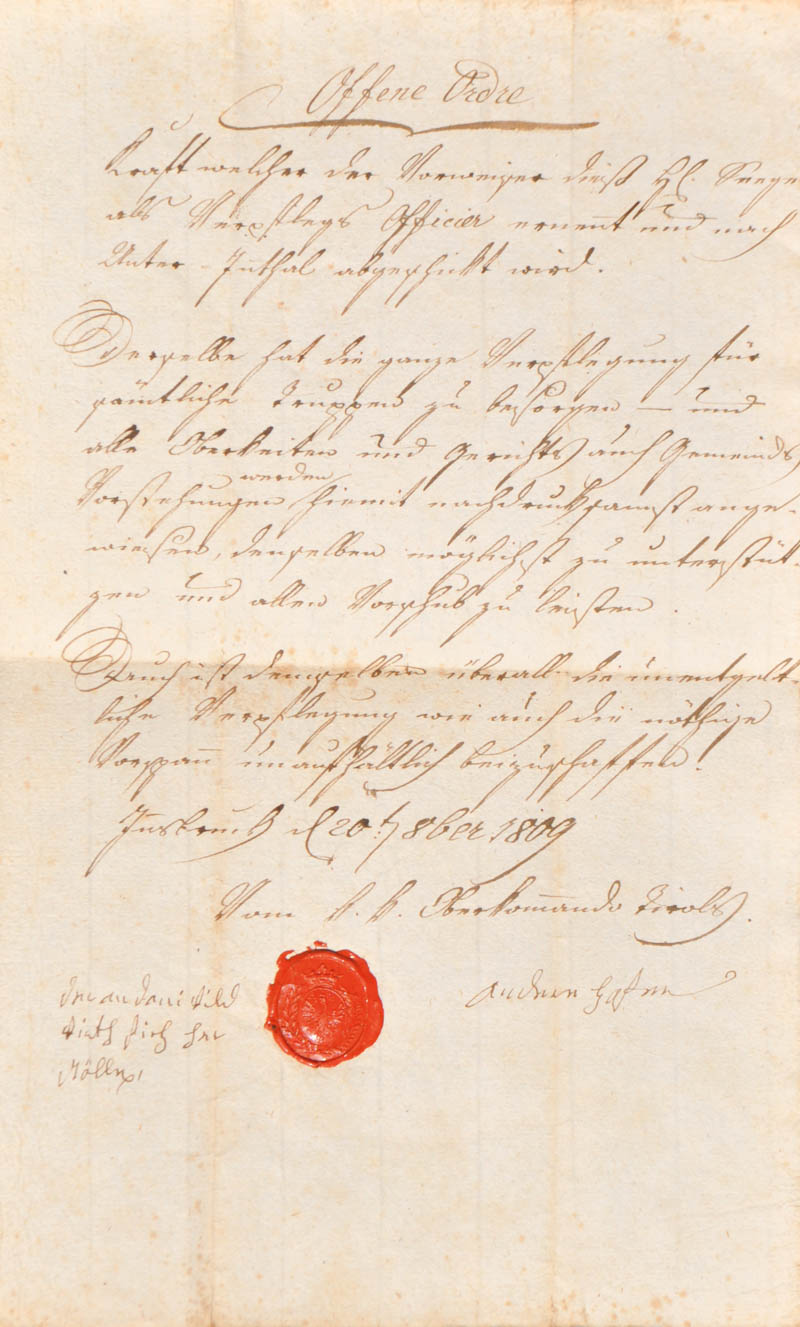 Offene Ordre
Kraft welcher der Vorweiser dieß H.
als Verpflegs Officier ernent und nach
Unter Inthal abgeschickt wird.
Derselbe hat die ganze Verpflegung für
sämtliche Truppen zu besorgen — und
alle Oberkeiten und Gerichts auch Gemeinds
werden
Vorstehungen hiemit nachdrucksamst ange-
wiesen, denselben möglichst zu unterstüt-
zen und allen Vorschub zu leisten.
Auch ist demselben überall die unentgelt-
liche Verpflegung wie auch die nöthige
Vorspann unaufhältlich beizuschaffen.
Insbruck d 20t 8ber 1809
Vom k. k. Oberkomando Tirols.
andere hofer